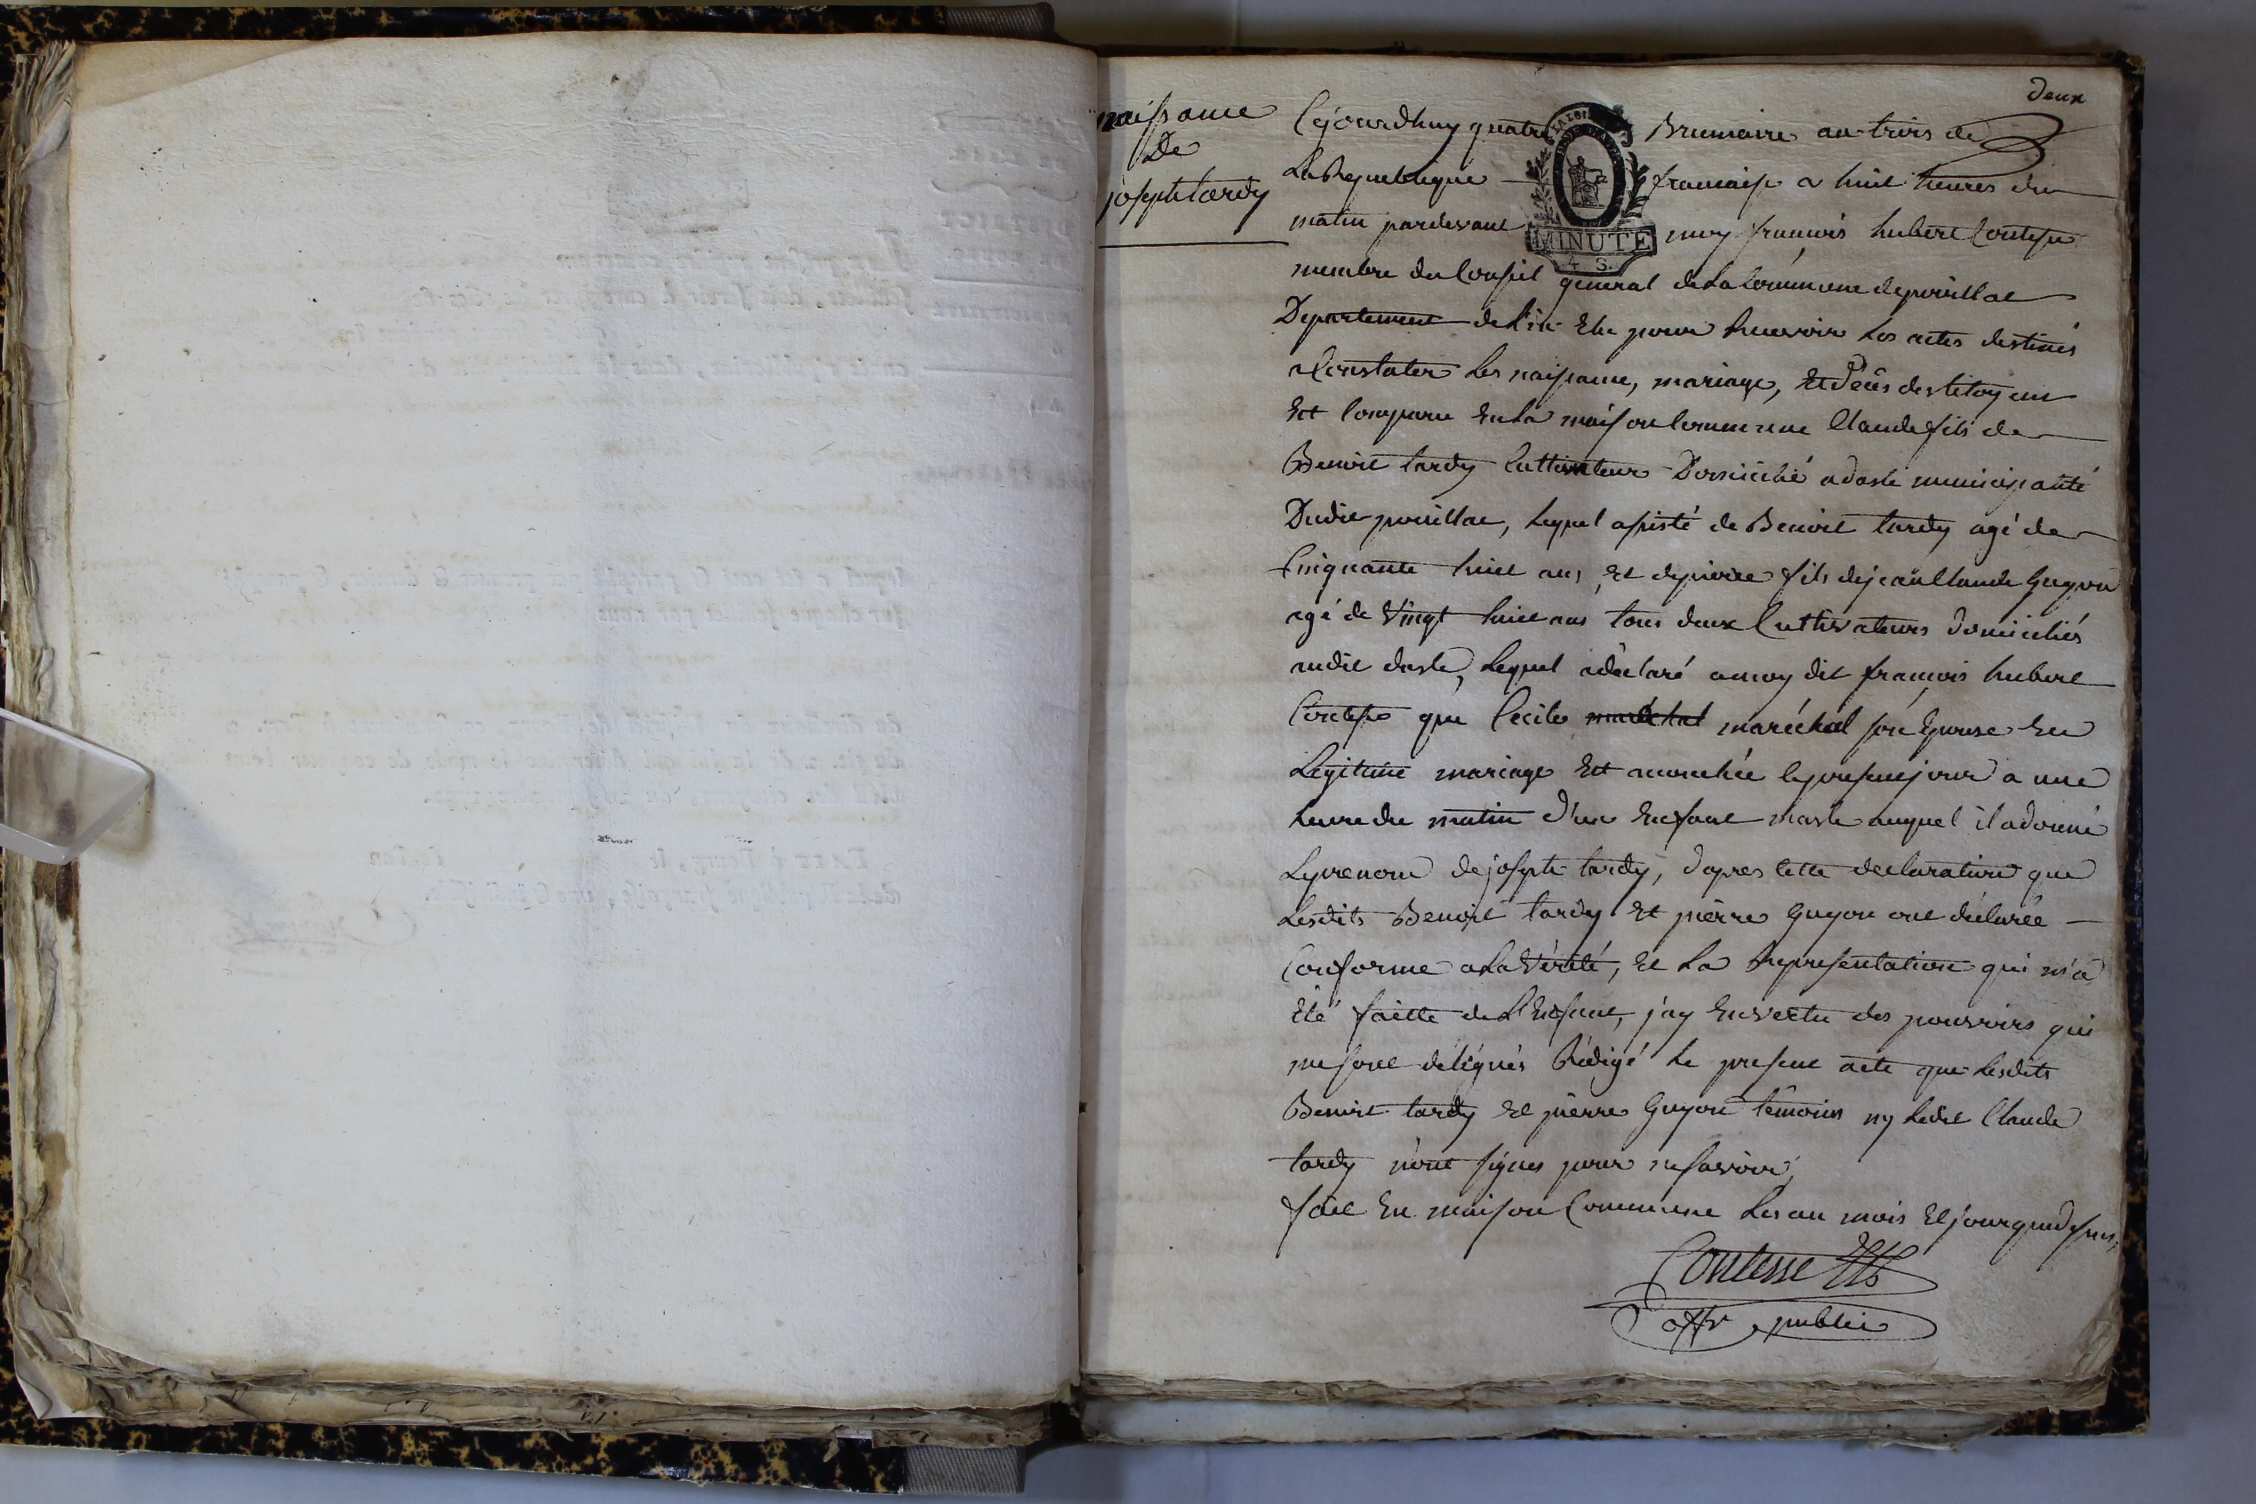 deux
naissance
De
joseph tardy
Cejourdhuy quatre Brumaire an trois de
La Republique francaise a huit heures du
matin pardevant moy francois hubert Contesse
MINUTE
4 S.
membre du Conseil general de la Commune depouillat
Departement de L'ain Elu pour Recevoir Les actes destinés
a Constater Les naissance, mariage, Et Décès des Citoyens
Est Comparu En La maison Commune Claude fils de
Benoit tardy Cultivateur Domicilié a dasle municipalité
Dudit pouillat, Lequel assisté de Benoit tardy agé de
Cinquante huit ans, et depierre fils dejean Claude Guyon
agé de Vingt huit ans tous deux Cultivateurs domiciliés
audit dasle, Lequel adéclaré amoy dit françois hubert
Contesse que Cecile maréchal son Epouse En
Legitime mariage Est acouchée lepresent jour a une
heure du matin d'un Enfant masle auquel il a donné
Le prenom de joseph tardy, d'apres cette declaration que
Lesdits Benoit tardy Et pierre Guyon ont déclarée
Conforme a La Vérité, et La Representation qui m'a
Eté faitte de L'Enfant, j'ay En vertu des pouvoirs qui
me sont délégués Rédigé Le present acte que Lesdits
Benoit tardy et pierre Guyon témoins ny Ledit Claude
tardy n'ont signes pour ne savoir,
fait En maison Commune Les an mois Et jour que dessus,
Contesse
offr public